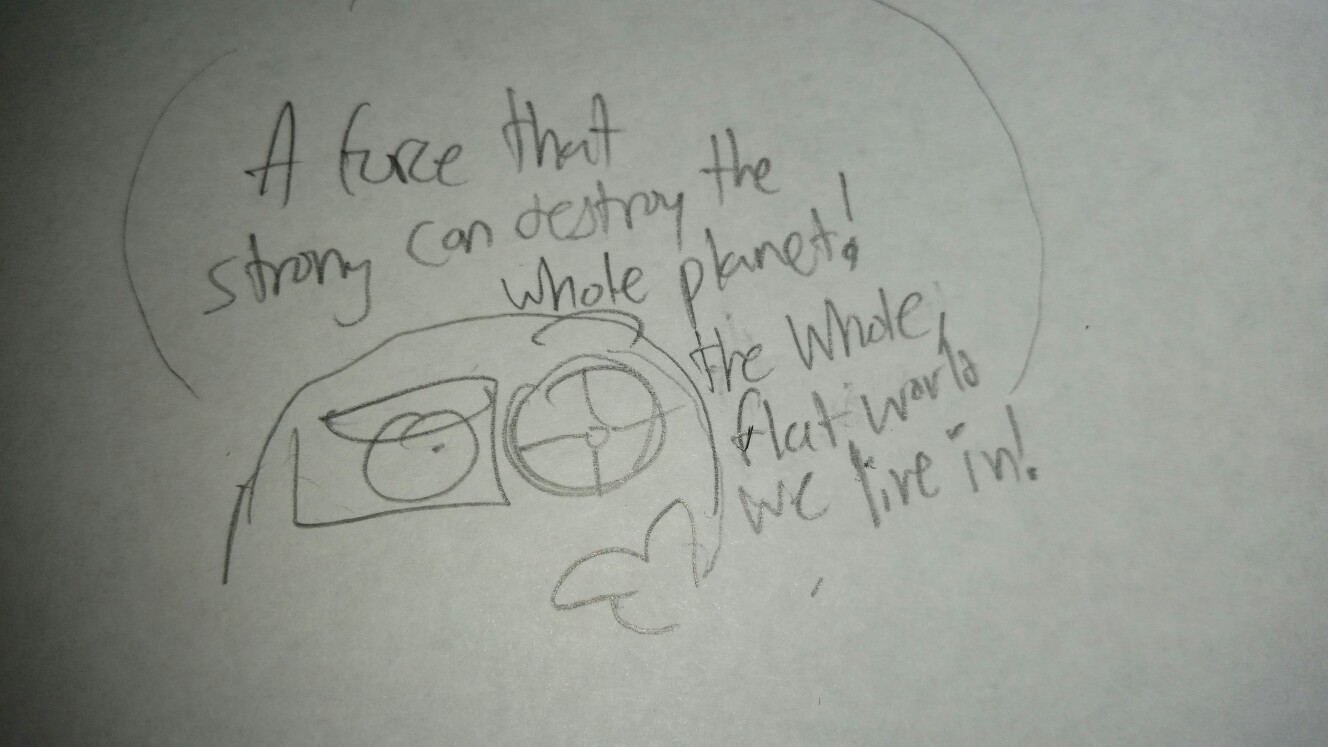 A force that
strong can destroy the
whole planet!
the whole,
flat world
we live in!